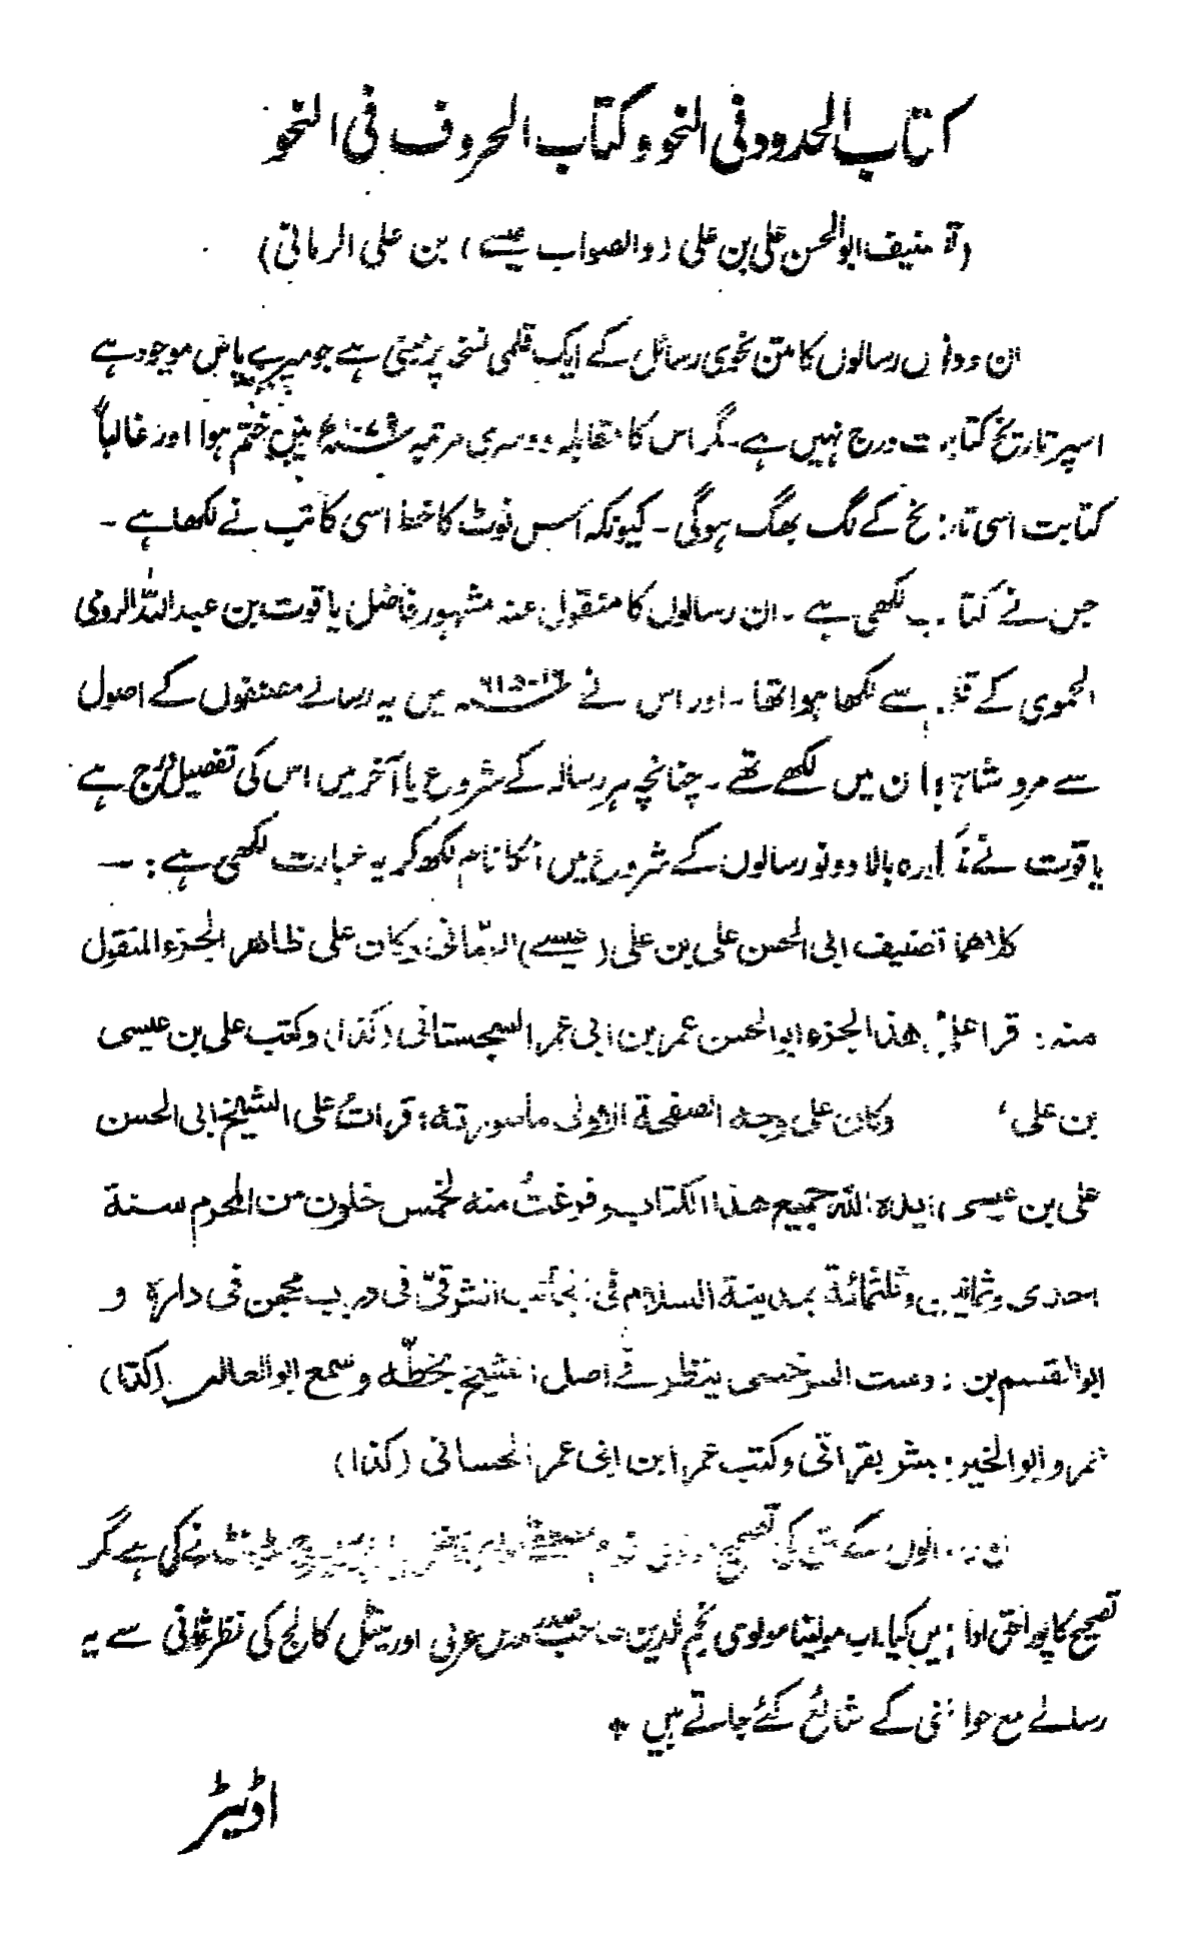 کتاب الحدود فی النحو و کتاب الحروف فی النحو
(تصنیف ابوالحسن علی بن علی (والصواب عیسے) بن علی الرمانی)
ان دونوں رسالوں کا متن نحوی رسائل کے ایک قلمی نسخہ پر مبنی ہے جو میرے پاس موجود ہے
اسپر تاریخ کتابت درج نہیں ہے۔ مگر اس کا مقابلہ دوسری مرتبہ میں ختم ہوا اور غالباً
کتابت اسی تاریخ کے لگ بھگ ہوگی۔ کیونکہ اس نوٹ کا خط اسی کاتب نے لکھا ہے۔
جس نے کتاب لکھی ہے۔ ان رسالوں کا منقول عنہ مشہور فاضل یاقوت بن عبداللہ الرومی
الحموی کے قلم سے لکھا ہوا تھا۔ اور اس نے میں یہ رسالے مصنفوں کے اصول
سے مرو شاہجہان میں لکھے تھے۔ چنانچہ ہر رسالہ کے شروع یا آخر میں اس کی تفصیل درج ہے
یاقوت نے مذکورہ بالا دونو رسالوں کے شروع میں انکا نام لکھ کر یہ عبارت لکھی ہے:—
کلاهما تصنیف ابی الحسن علی بن علی (عیسے) الرمّانی وکان علی ظاهر الجزء المنقول
منه: قرا علیّ هذا الجزء ابوالحسن عمر بن ابی عمر السجستانی (کذا) وکتب علی بن عیسی
بن علی، وکان علی وجه الصفحة الاولی ما صورته: قراتُ علی الشیخ ابی الحسن
علی بن عیسی ایده الله جمیع هذا الکتاب وفرغتُ منه لخمس خلون من المحرم سنة
احدی وثمانین وثلثمائة بمدینة السلام فی الجانب الشرقیّ فی درب فی دارهٖ و
ابوالقسم بن السرخسی ینظر فی اصل الشیخ بخطّه وسمع ابو العالی (کذا)
عمرو ابوالخیر بشر بقراتی وکتب عمر ابن ابی عمر الحسانی (کذا)
رسالوں کے متن کی تصحیح نے کی ہے مگر
تصحیح کا پورا حق ادا نہیں کیا۔ اب مولینا مولوی نجم الدین صاحب مدرس عربی اورینٹل کالج کی نظر ثانی سے یہ
رسالے مع حواشی کے شائع کئے جاتے ہیں *
اڈیٹر